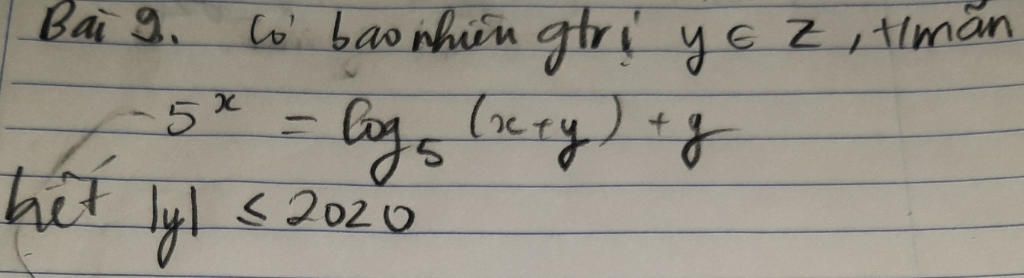 Bài 9. Có bao nhiêu gtrị y ∈ Z, t/mãn
5ˣ = log₅ (x+y) + y
biết |y| ≤ 2020